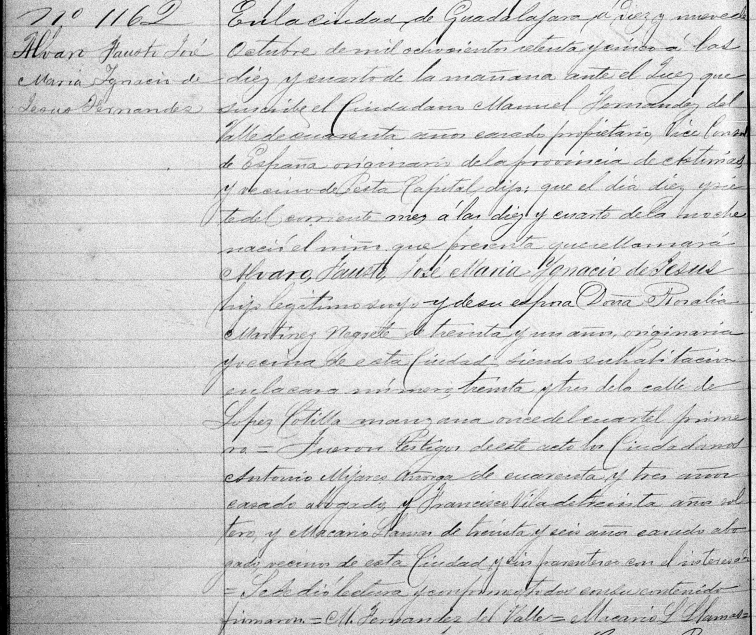 Nº 1162
Alvaro Fausto José
Maria Ygnacio de
Jesus Fernandez
En la ciudad de Guadalajara á diez y nueve de
Octubre de mil ochocientos setenta y cinco á las
diez y cuarto de la mañana ante el Juez que
suscribe el Ciudadano Manuel Fernandez del
Valle de cuarenta años casado propietario, Vice Consul
de España originario de la provincia de Asturias
y vecino de esta Capital dijo: que el dia diez y sie
te del corriente mes á las diez y cuarto de la noche
nació el niño que presenta que se llamará
Alvaro, Fausto, José Maria Ygnacio de Jesus
hijo legitimo suyo y de su esposa Doña Rosalia
Martinez Negrete de treinta y un años, originaria
y vecina de esta Ciudad, siendo su habitacion
en la casa número treinta y tres de la calle de
Lopez Cotilla manzana once del cuartel prime
ro = Fueron testigos de este acto los Ciudadanos
Antonio Mijares Añorga de cuarenta y tres años
casado abogado, y Francisco Vila de treinta años sol
tero, y Macario Llamas de treinta y seis años casado abo
gado, vecinos de esta Ciudad y sin parentesco con el interesado
= Se le dió lectura y conformes todos con su contenido
firmaron. = M. Fernandez del Valle = Macario L. Llamas =